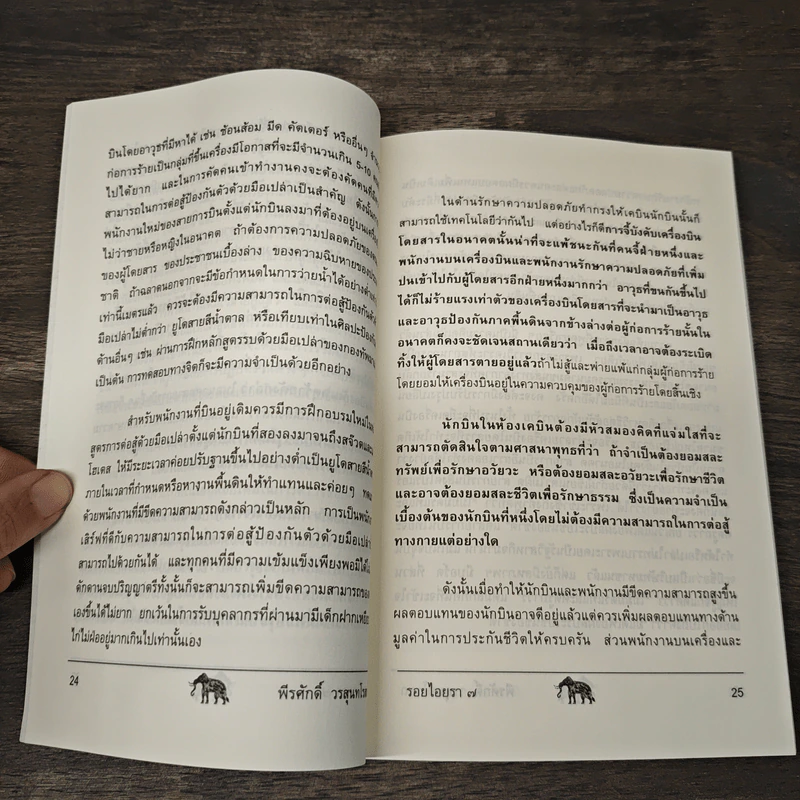 บินโดยอาวุธที่มีหาได้ เช่น ช้อนส้อม มีด คัตเตอร์ หรืออื่นๆ
ก่อการร้ายเป็นกลุ่มที่ขึ้นเครื่องมีโอกาสที่จะมีจำนวนเกิน 5-10
ไปได้ยาก และในการคัดคนเข้าทำงานคงจะต้องคัดคนที่มี
สามารถในการต่อสู้ป้องกันตัวด้วยมือเปล่าเป็นสำคัญ ดังนั้น
พนักงานใหม่ของสายการบินตั้งแต่นักบินลงมาที่ต้องอยู่บน
ไม่ว่าชายหรือหญิงในอนาคต ถ้าต้องการความปลอดภัยของ
ของผู้โดยสาร ของประชาชนเบื้องล่าง ของความฉิบหายของ
ชาติ ถ้าฉลาดนอกจากจะมีข้อกำหนดในการว่ายน้ำได้อย่างต่ำ
เท่านี้เมตรแล้ว ควรจะต้องมีความสามารถในการต่อสู้ป้องกันตัว
มือเปล่าไม่ต่ำกว่า ยูโดสายสีน้ำตาล หรือเทียบเท่าในศิลปะป้องกัน
ด้านอื่นๆ เช่น ผ่านการฝึกหลักสูตรรบด้วยมือเปล่าของกองทัพ
เป็นต้น การทดสอบทางจิตก็จะมีความจำเป็นด้วยอีกอย่าง
สำหรับพนักงานที่บินอยู่เดิมควรมีการฝึกอบรมใหม่ใน
สูตรการต่อสู้ด้วยมือเปล่าตั้งแต่นักบินที่สองลงมาจนถึงสจ๊วตและ
โฮเตส ให้มีระยะเวลาค่อยปรับฐานขึ้นไปอย่างต่ำเป็นยูโดสายสีน้ำ
ภายในเวลาที่กำหนดหรือหางานพื้นดินให้ทำแทนและค่อยๆ
ด้วยพนักงานที่มีขีดความสามารถดังกล่าวเป็นหลัก การเป็นพนักงาน
เสิร์ฟที่ดีกับความสามารถในการต่อสู้ป้องกันตัวด้วยมือเปล่า
สามารถไปด้วยกันได้ และทุกคนที่มีความเข้มแข็งเพียงพอมิได้
ดักดานจบปริญญาตรีทั้งนั้นก็จะสามารถเพิ่มขีดความสามารถของ
เองขึ้นได้ไม่ยาก ยกเว้นในการรับบุคลากรที่ผ่านมามีเด็กฝากเหยียบ
ไก่ไม่ฝ่ออยู่มากเกินไปเท่านั้นเอง
24
พีรศักดิ์ วรสุนทโรสถ
ในด้านรักษาความปลอดภัยทำกรงให้เคบินนักบินนั้นก็
สามารถใช้เทคโนโลยีว่ากันไป แต่อย่างไรก็ดีการจี้บังคับเครื่องบิน
โดยสารในอนาคตนั้นน่าที่จะแพ้ชนะกันที่คนจี้ฝ่ายหนึ่งและ
พนักงานบนเครื่องบินและพนักงานรักษาความปลอดภัยที่เพิ่ม
ปนเข้าไปกับผู้โดยสารอีกฝ่ายหนึ่งมากกว่า อาวุธที่ขนกันขึ้นไป
ได้ก็ไม่ร้ายแรงเท่าตัวของเครื่องบินโดยสารที่จะนำมาเป็นอาวุธ
และอาวุธป้องกันภาคพื้นดินจากข้างล่างต่อผู้ก่อการร้ายนั้นใน
อนาคตก็คงจะชัดเจนสถานเดียวว่า เมื่อถึงเวลาอาจต้องระเบิด
ทิ้งให้ผู้โดยสารตายอยู่แล้วถ้าไม่สู้และพ่ายแพ้แก่กลุ่มผู้ก่อการร้าย
โดยยอมให้เครื่องบินอยู่ในความควบคุมของผู้ก่อการร้ายโดยสิ้นเชิง
นักบินในห้องเคบินต้องมีหัวสมองคิดที่แจ่มใสที่จะ
สามารถตัดสินใจตามศาสนาพุทธที่ว่า ถ้าจำเป็นต้องยอมสละ
ทรัพย์เพื่อรักษาอวัยวะ หรือต้องยอมสละอวัยวะเพื่อรักษาชีวิต
และอาจต้องยอมสละชีวิตเพื่อรักษาธรรม ซึ่งเป็นความจำเป็น
เบื้องต้นของนักบินที่หนึ่งโดยไม่ต้องมีความสามารถในการต่อสู้
ทางกายแต่อย่างใด
ดังนั้นเมื่อทำให้นักบินและพนักงานมีขีดความสามารถสูงขึ้น
ผลตอบแทนของนักบินอาจดีอยู่แล้วแต่ควรเพิ่มผลตอบแทนทางด้าน
มูลค่าในการประกันชีวิตให้ครบครัน ส่วนพนักงานบนเครื่องและ
รอยไอยรา ๗
25